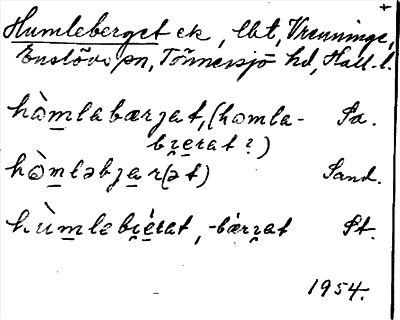 +
Humleberget ek, lht, Vrenninge,
Enslövs sn, Tönnersjö hd, Hall. l.
hòmlabærjat, (homla- Sa.
bi̯erat?)
hònləbjar(ət) Sand.
hùmlebi̯érat, -bǽrjat St.
1954.